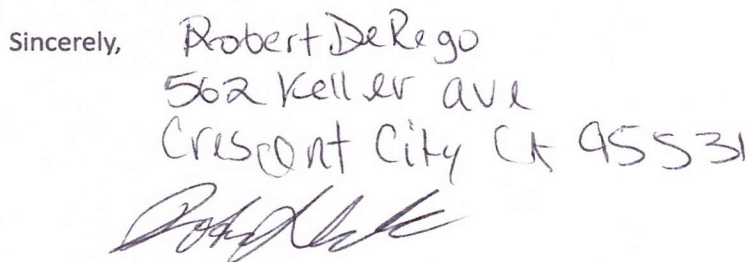 Sincerely, Robert DeRego
562 Keller ave
Crescent City CA 95531